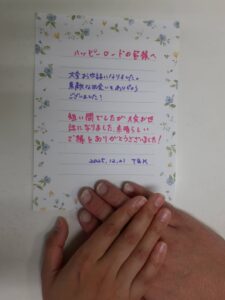 ハッピーロードの皆様へ
大変お世話になりました。
素敵な出会いをありがとう
ございました！
短い間でしたが大変お世
話になりました 素晴らしい
ご縁をありがとうございました！
2025.12.21